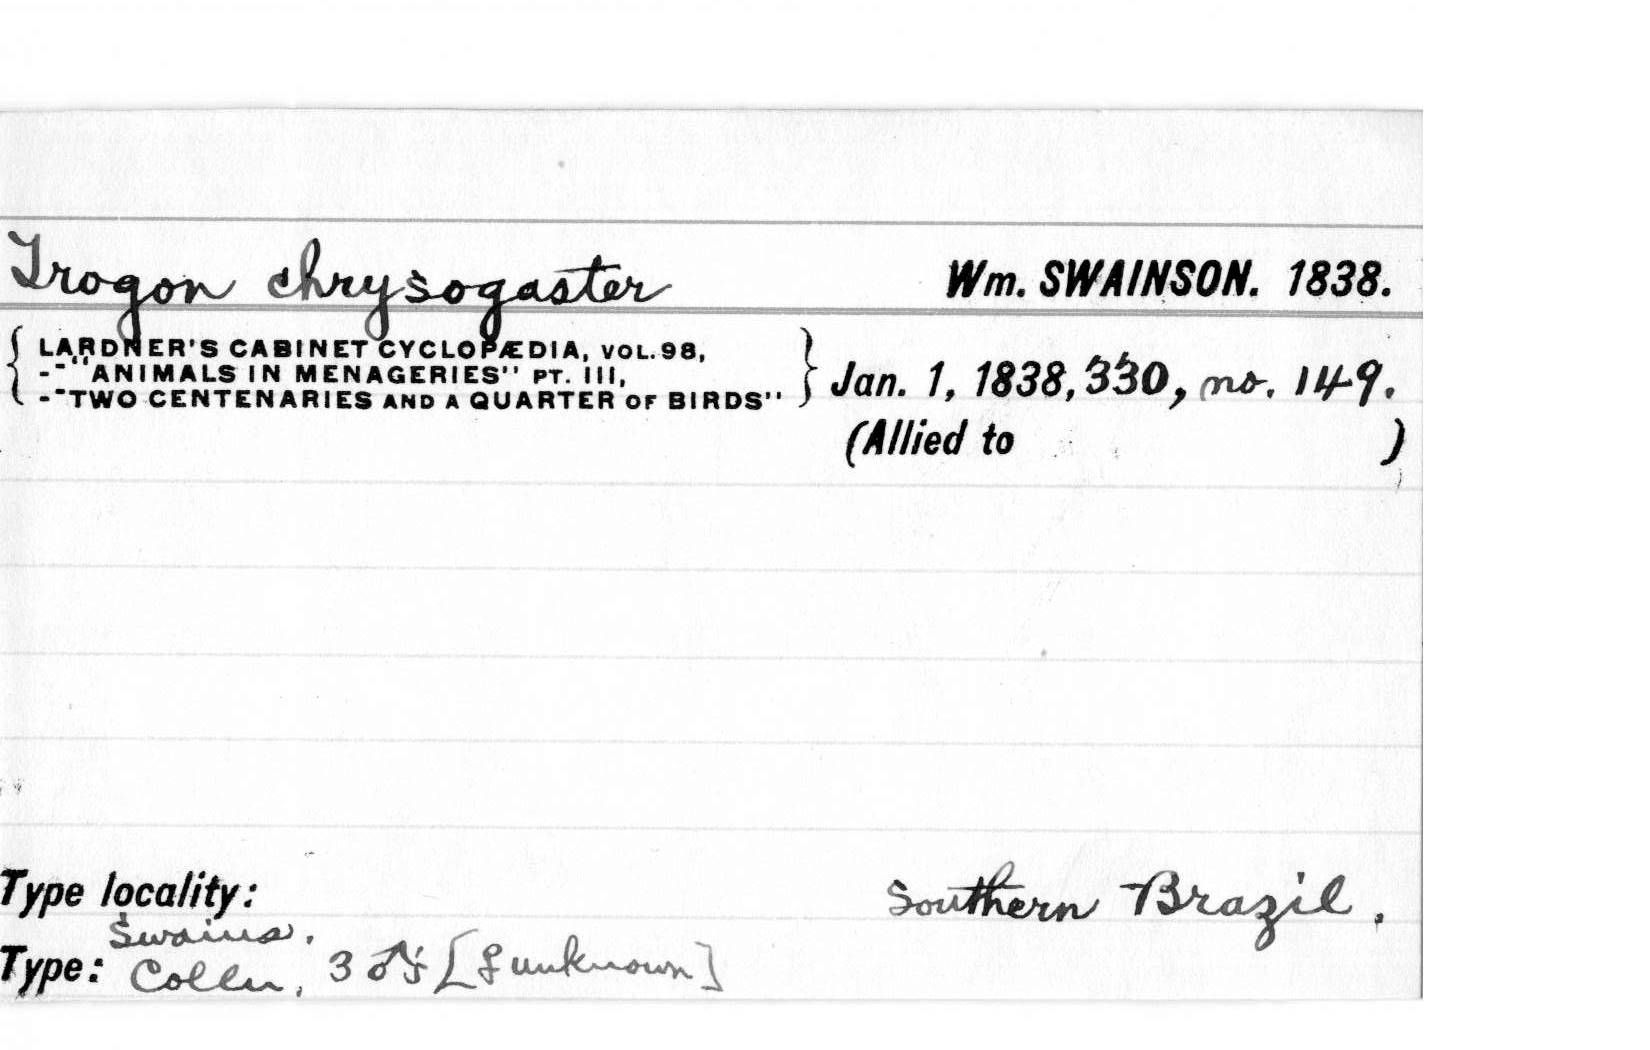 Trogon chrysogaster Wm. SWAINSON. 1838.
LARDNER'S CABINET CYCLOPÆDIA, VOL. 98,
-"ANIMALS IN MENAGERIES" PT. III,
-"TWO CENTENARIES AND A QUARTER OF BIRDS" Jan. 1, 1838, 330, no. 149.
(Allied to )
Type locality: Southern Brazil.
Swains.
Type: Colln, 3 ♂'s [♀ unknown]